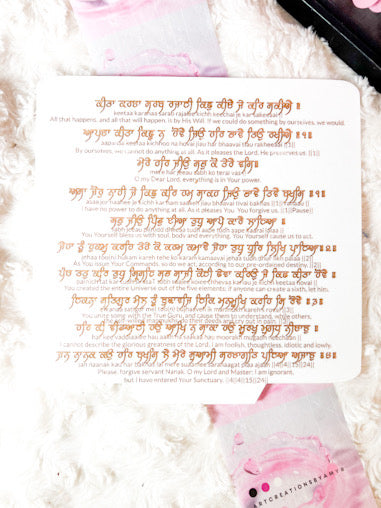 ਕੀਤਾ ਕਰਣਾ ਸਰਬ ਰਜਾਈ ਕਿਛੁ ਕੀਚੈ ਜੇ ਕਰਿ ਸਕੀਐ ॥
keetaa karanaa sarab rajaaee kichh keechai je kar sakeeai |
All that happens, and all that will happen, is by His Will. If we could do something by ourselves, we would.
ਆਪਣਾ ਕੀਤਾ ਕਿਛੂ ਨ ਹੋਵੈ ਜਿਉ ਹਰਿ ਭਾਵੈ ਤਿਉ ਰਖੀਐ ॥੧॥
aapanaa keetaa kichhoo na hovai jiau har bhaavai tiau rakheeai |1|
By ourselves, we cannot do anything at all. As it pleases the Lord, He preserves us. ||1||
ਮੇਰੇ ਹਰਿ ਜੀਉ ਸਭੁ ਕੋ ਤੇਰੈ ਵਸਿ ॥
mere har jeeau sabh ko terai vas |
O my Dear Lord, everything is in Your power.
ਅਸਾ ਜੋਰੁ ਨਾਹੀ ਜੇ ਕਿਛੁ ਕਰਿ ਹਮ ਸਾਕਹ ਜਿਉ ਭਾਵੈ ਤਿਵੈ ਬਖਸਿ ॥੧॥
asaa jor naahee je kichh kar ham saakah jiau bhaavai tivai bakhas |1|
I have no power to do anything at all. As it pleases You, You forgive us. ||1||Pause||
ਸਭੁ ਜੀਉ ਪਿੰਡੁ ਦੀਆ ਤੁਧੁ ਆਪੇ ਕਾਰੈ ਲਾਇਆ ॥
sabh jeeau pindd deea tudh aape tudh aape kaarai laaeaa |
You Yourself bless us with soul, body and everything. You Yourself cause us to act.
ਜੇਹਾ ਤੂੰ ਹੁਕਮੁ ਕਰਹਿ ਤੇਹੇ ਕੋ ਕਰਮ ਕਮਾਵੈ ਜੇਹਾ ਤੁਧੁ ਧੁਰਿ ਲਿਖਿ ਪਾਇਆ ॥੨॥
jehaa toon hukam kareh tehe ko karam kamaavai jehaa tudh dhur likh paaeaa |2|
As You issue Your Commands, so do we act, according to our pre-ordained destiny. ||2||
ਪੰਚ ਤਤੁ ਕਰਿ ਤੁਧੁ ਸ੍ਰਿਸਟਿ ਸਭ ਸਾਜੀ ਕੋਈ ਛੇਵਾ ਕਰਿਉ ਜੇ ਕਿਛੁ ਕੀਤਾ ਹੋਵੈ ॥
panch tat kar tudh srisatt sabh saajee koee chhevaa kariau je kichh keetaa hovai |
You created the entire Universe out of the five elements; if anyone can create a sixth, let him.
ਇਕਨਾ ਸਤਿਗੁਰੁ ਮੇਲਿ ਤੂੰ ਬੁਝਾਵਹਿ ਇਕਿ ਮਨਮੁਖਿ ਕਰਹਿ ਸਿ ਰੋਵੈ ॥੩॥
ikanaa satigur mel toon bujhaaveh ik manamukh kareh si rovai |3|
You unite some with the True Guru, and cause them to understand, while others,
the self-willed manmukhs, do their deeds and cry out in pain. ||3||
ਹਰਿ ਕੀ ਵਡਿਆਈ ਹਉ ਆਖਿ ਨ ਸਾਕਾ ਹਉ ਮੂਰਖੁ ਮੁਗਧੁ ਨੀਚਾਣੁ ॥
har kee vaddiaaee hau aakh na saakaa hau moorakh mugadh neechaan |
I cannot describe the glorious greatness of the Lord; I am foolish, thoughtless, idiotic and lowly.
ਜਨ ਨਾਨਕ ਕਉ ਹਰਿ ਬਖਸਿ ਲੈ ਮੇਰੇ ਸੁਆਮੀ ਸਰਣਾਗਤਿ ਪਇਆ ਅਜਾਣੁ ॥੪॥
jan naanak kau har bakhas lai mere suaamee saranaagat peaa ajaan ||4||15||24||
Please, forgive servant Nanak, O my Lord and Master; I am ignorant,
but I have entered Your Sanctuary. ||4||15||24||
ARTCREATIONSBYAMYK